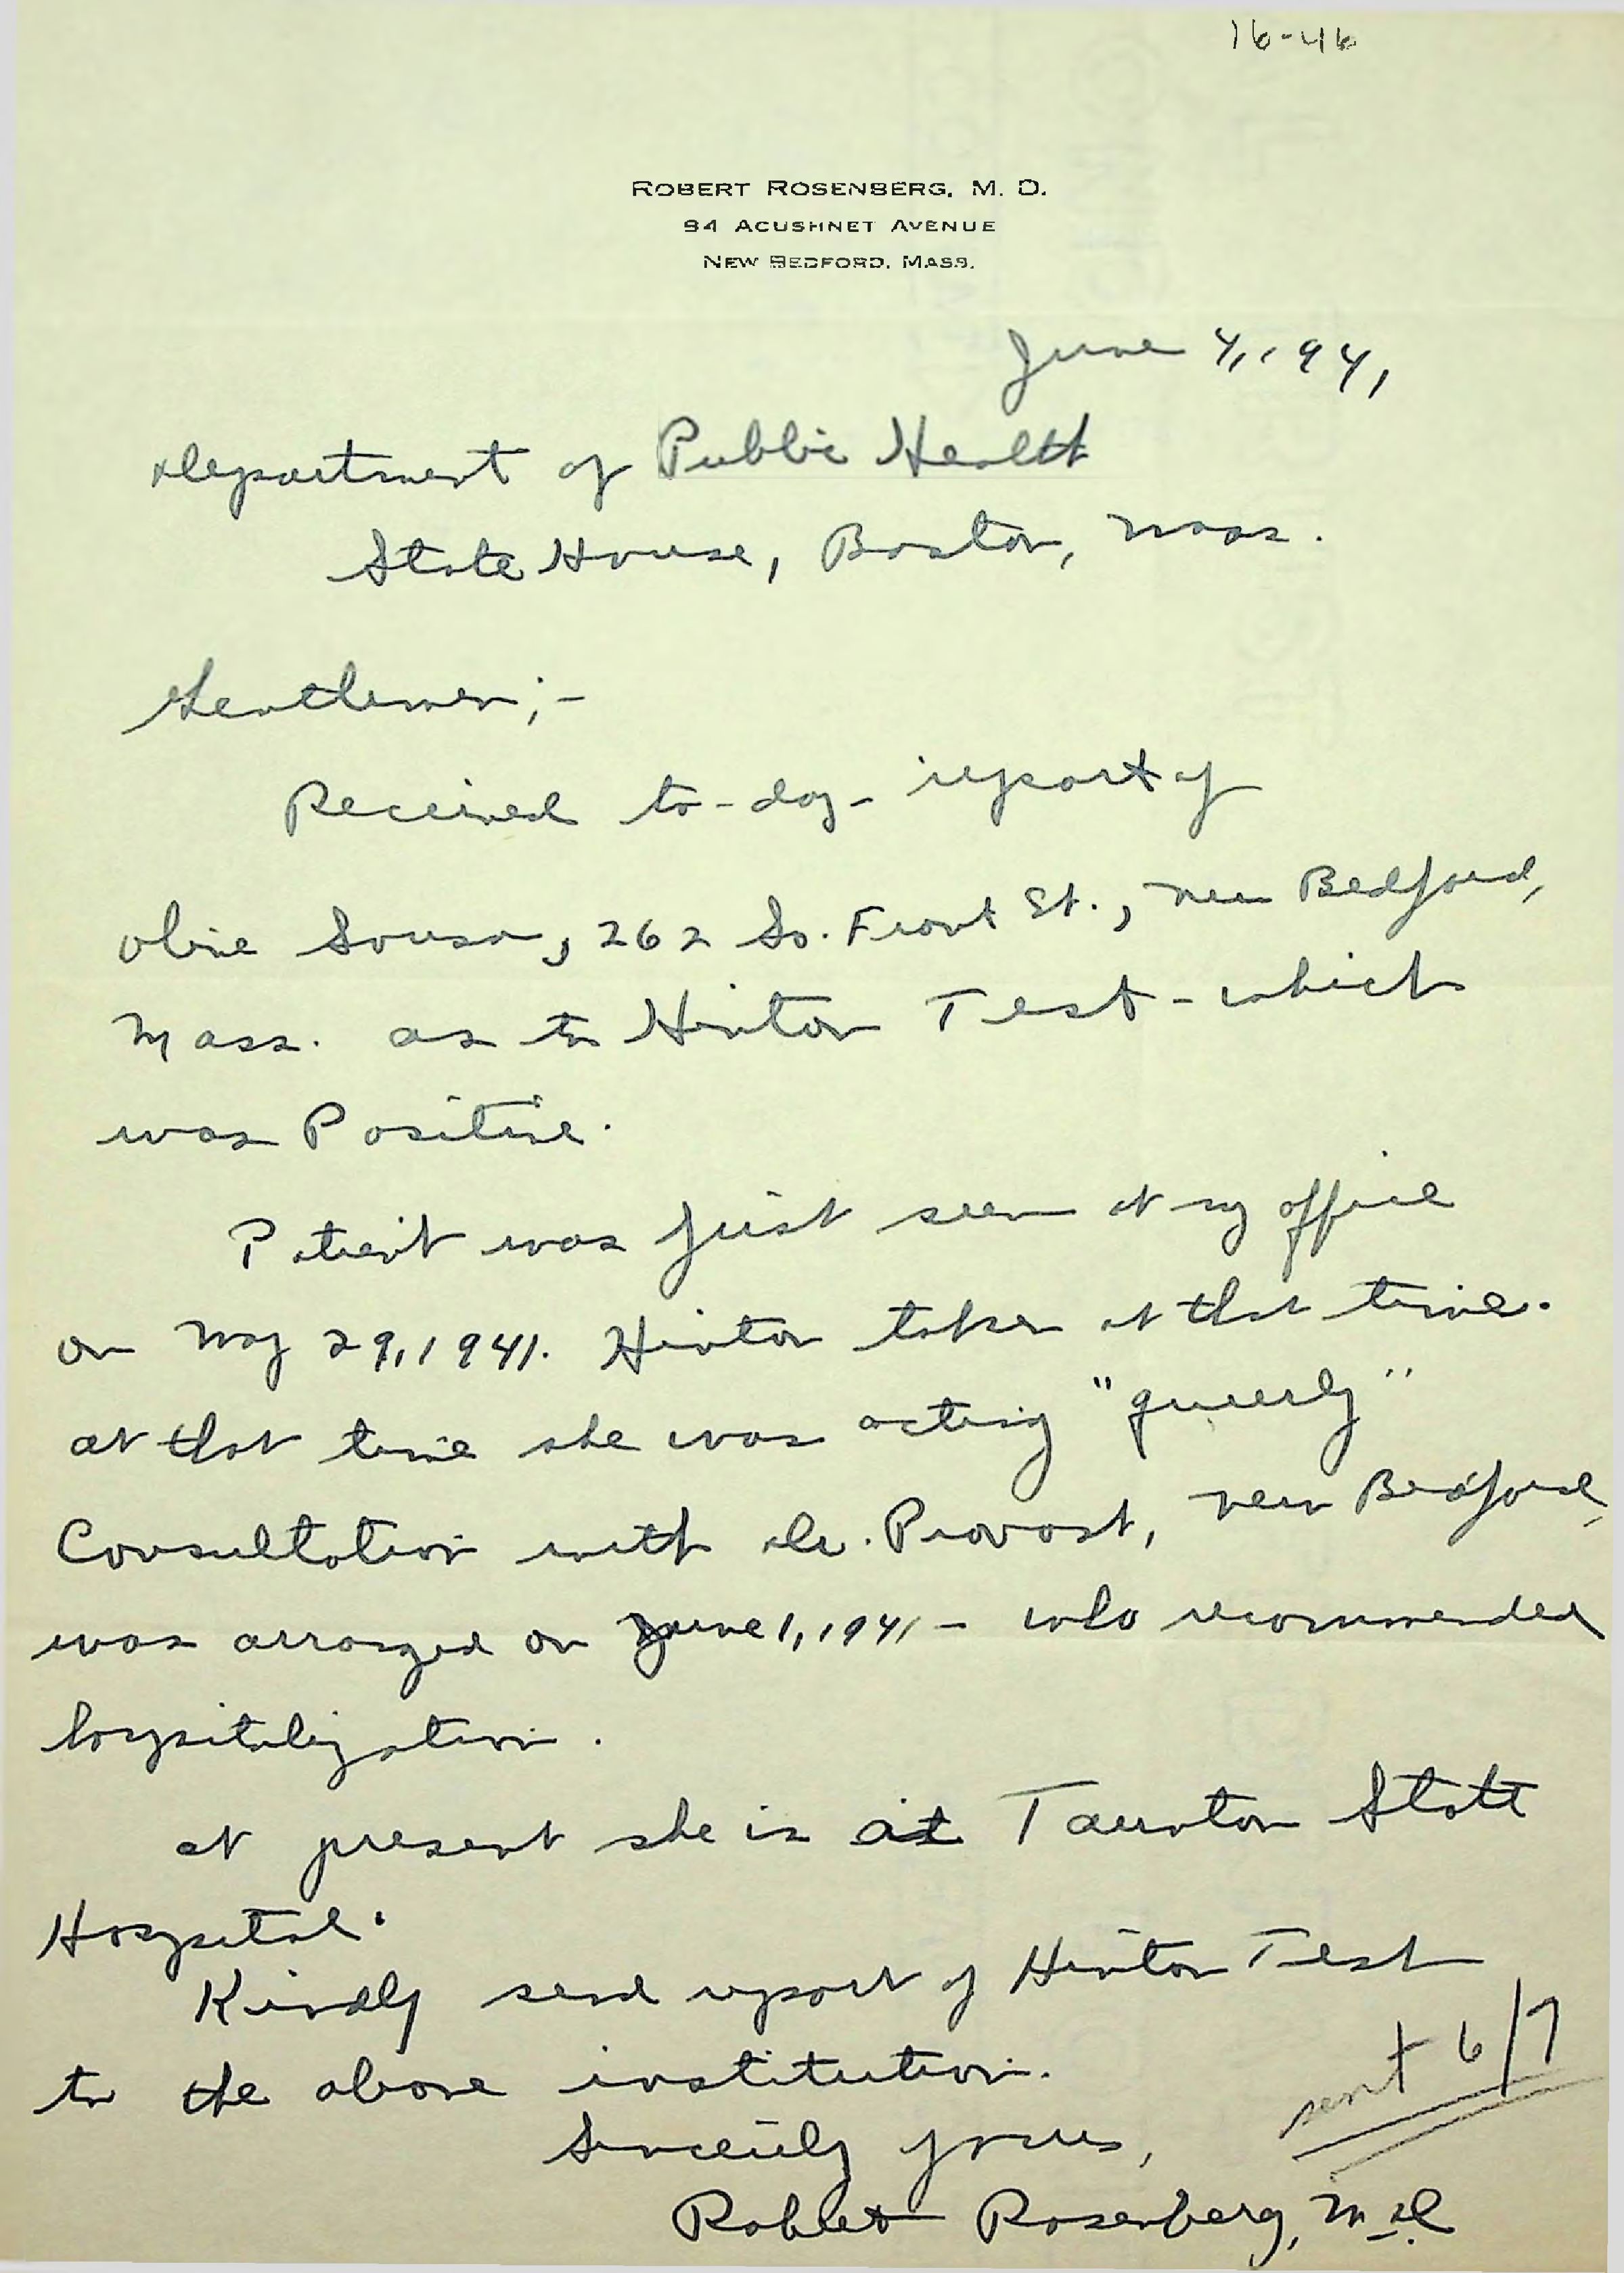 16-46
ROBERT ROSENBERG, M. D.
94 ACUSHNET AVENUE
NEW BEDFORD, MASS.
June 4, 1941
Department of Public Health
State House, Boston, Mass.
Gentlemen;-
Received to-day - report of
Sousa, 262 So. Front St., New Bedford,
Mass. as to Hinton Test - which
was Positive.
Patient was first seen at my office
on May 29, 1941. Hinton taken at that time.
At that time she was acting "queerly"
Consultation with Dr. Provost, New Bedford,
was arranged on June 1, 1941 - who recommended
hospitalization.
At present she is at Taunton State
Hospital.
Kindly send report of Hinton Test
to the above institution.
sent 6/7
Sincerely yours,
Robert Rosenberg, M.D.